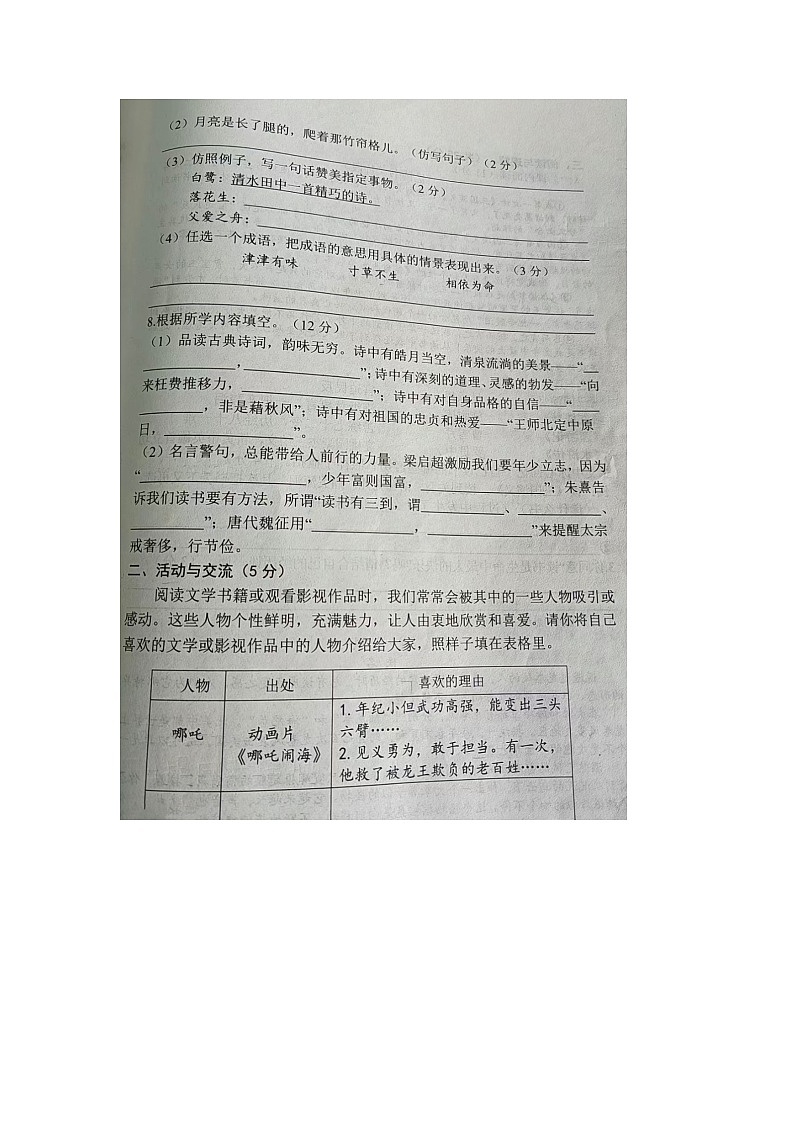 (2)月亮是长了腿的，爬着那竹帘格儿。(仿写句子)(2分)
(3)仿照例子，写一句话赞美指定事物。(2分)
白鹭：清水田中一首精巧的诗。
落花生：
父爱之舟：
(4)任选一个成语，把成语的意思用具体的情景表现出来。(3分)
津津有味 寸草不生 相依为命
8.根据所学内容填空。(12分)
(1)品读古典诗词，韵味无穷。诗中有皓月当空，清泉流淌的美景——“__
__________，______________”；诗中有深刻的道理、灵感的勃发——“向
来枉费推移力，______________”；诗中有对自身品格的自信——“____
________，非是藉秋风”；诗中有对祖国的忠贞和热爱——“王师北定中原
日，______________”。
(2)名言警句，总能带给人前行的力量。梁启超激励我们要年少立志，因为
“__________________，少年富则国富，______________”；朱熹告
诉我们读书要有方法，所谓“读书有三到，谓__________、__________、
________”；唐代魏征用“____________，____________”来提醒太宗
戒奢侈，行节俭。
二、活动与交流(5分)
阅读文学书籍或观看影视作品时，我们常常会被其中的一些人物吸引或
感动。这些人物个性鲜明，充满魅力，让人由衷地欣赏和喜爱。请你将自己
喜欢的文学或影视作品中的人物介绍给大家，照样子填在表格里。
人物 出处 喜欢的理由
哪吒 动画片
《哪吒闹海》
1.年纪小但武功高强，能变出三头
六臂……
2.见义勇为，敢于担当。有一次，
他救了被龙王欺负的老百姓……